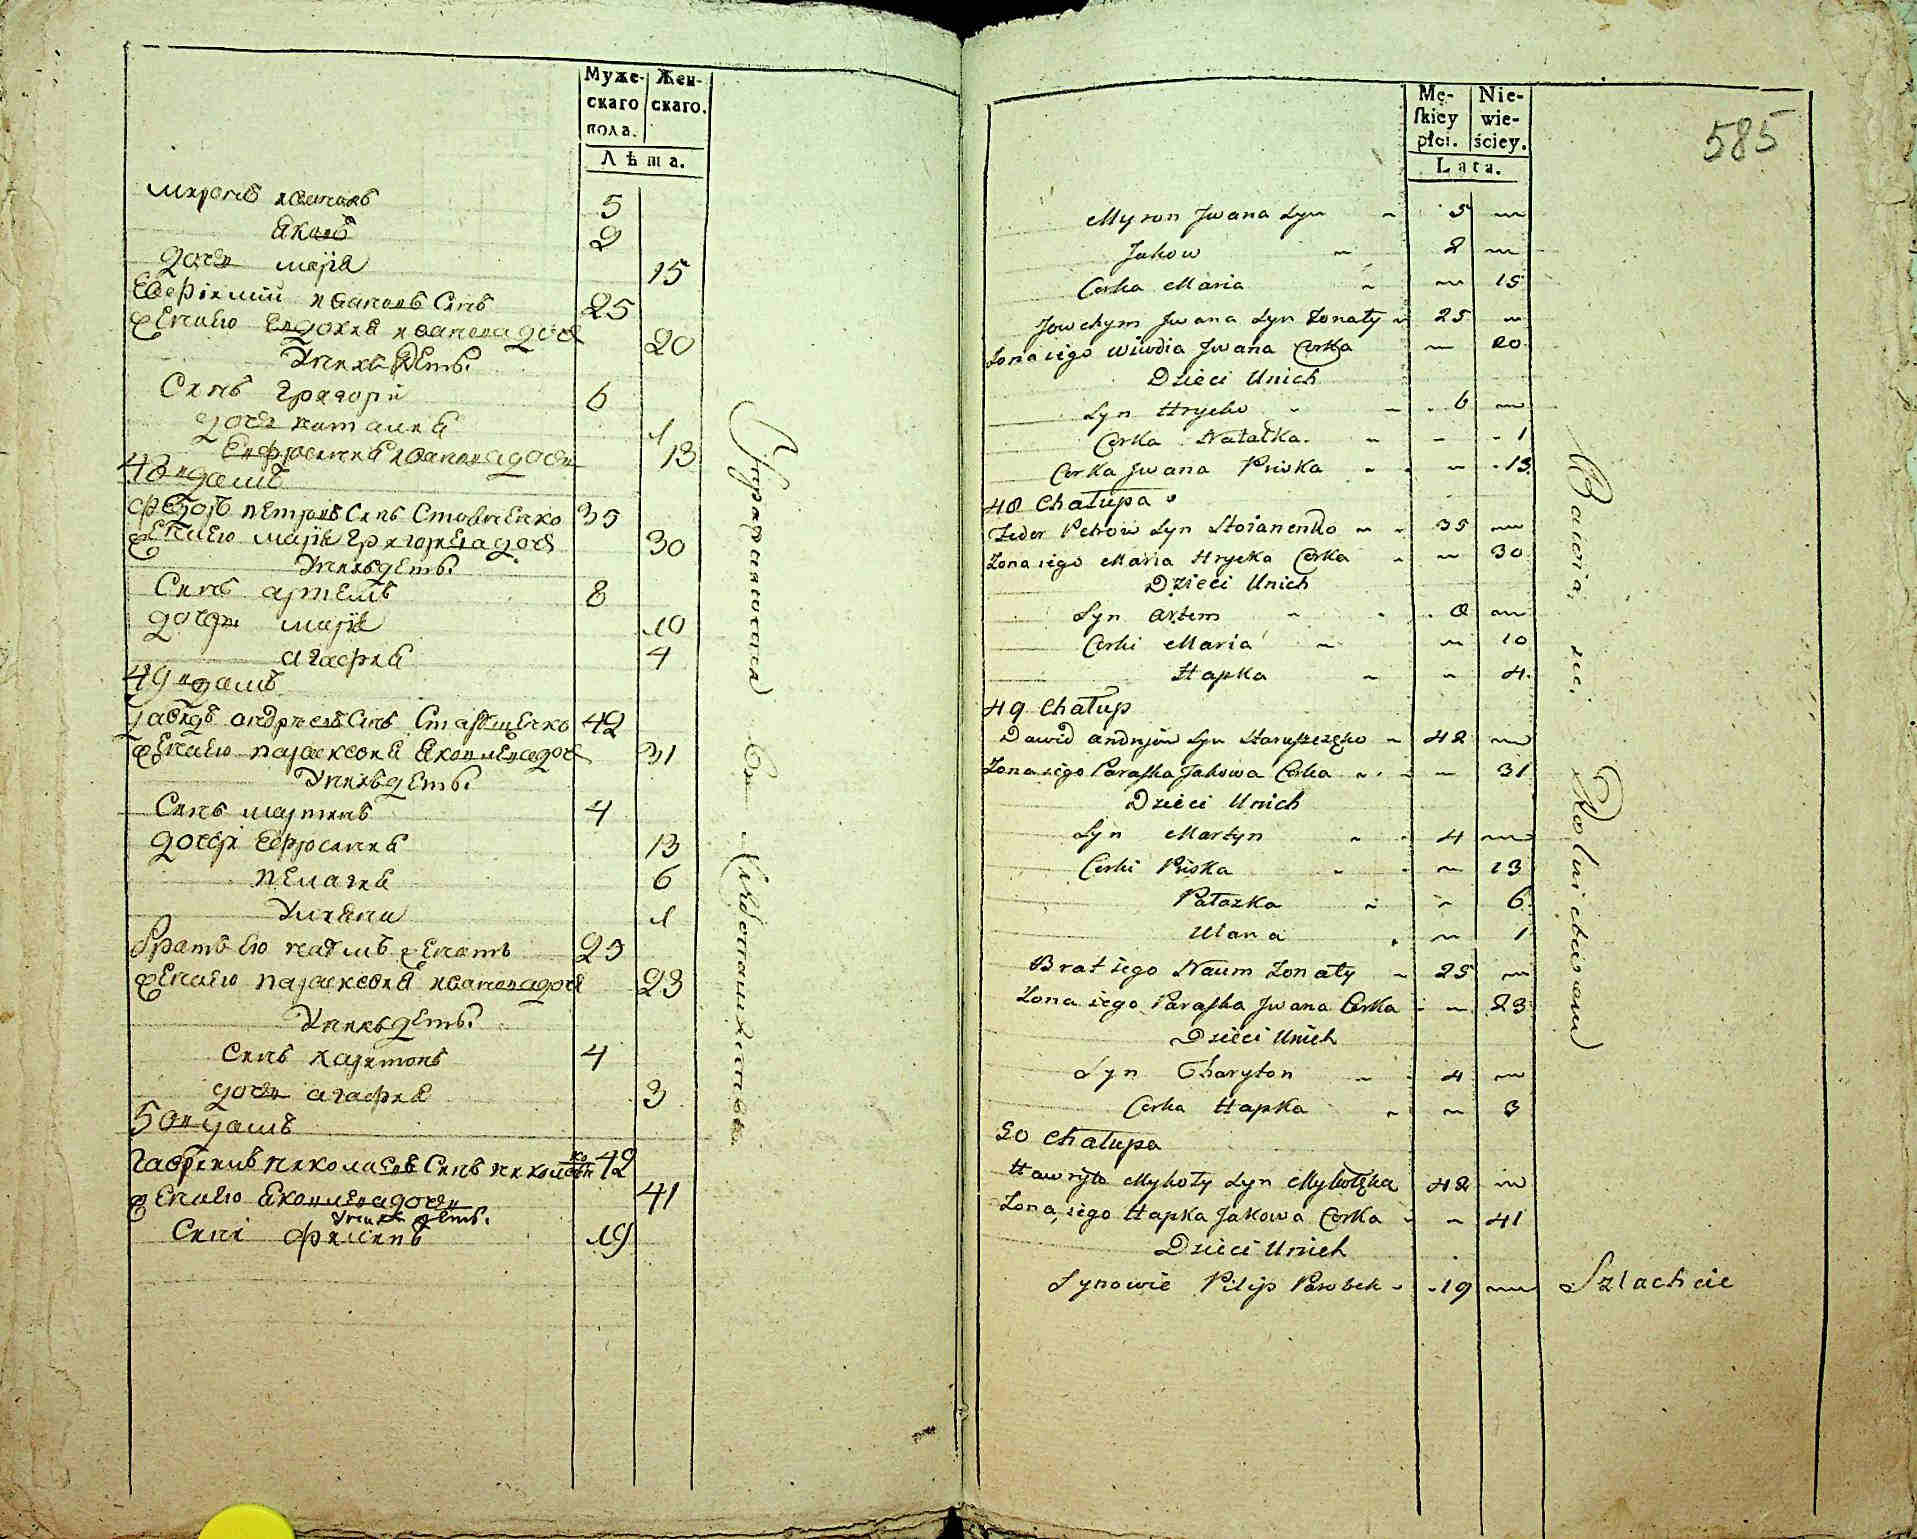 Муже-
скаго
пола.
Жен-
скаго.
Лѣта.
Миронъ Ивановъ 5
Яковъ 2
дочь Марія 15
Евфімий Ивановъ Сынъ 25
жена ево Евдокия Иванова дочь 20
У них дети.
Сынъ Григорий 6
дочь Наталия 1
Ефросиния Иванова дочь 13
48 й домъ
Федоръ Петровъ Сынъ Стояненко 35
жена ево Мария Григориева дочь 30
У них дети.
Сынъ Артемъ 8
дочери Мария 10
Агафия 4
49 й домъ
Давидъ Андреевъ Сынъ 42
жена ево Параскевия Яковлева дочь 31
У них дети.
Сынъ Мартинъ 4
дочери Ефросиния 13
Пелагия 6
Улияна 1
Братъ ево Наумъ женатъ 25
жена ево Параскевия Иванова дочь 23
У них дети.
Сынъ Харитонъ 4
дочь Агафия 3
50 й домъ
Гавриилъ Николаевъ Сынъ 42
жена ево Яковлева дочь 41
У них дети.
Сыни Филипъ 19
Mę-
ſkiey
płci.
Nie-
wie-
ściey.
Lata.
585
Myron Jwana Syn 5
Jakow 2
Corka Maria 15
Jowchym Jwana Syn Zonaty 25
Zona iego Wiwdia Jwana Corka 20
Dzieci Unich
Syn Hryćko 6
Corka Natalka 1
Corka Jwana Priska 13
48 Chałupa
Fedor Petrow Syn Stoianenko 35
Zona iego Maria Hryćka Corka 30
Dzieci Unich
Syn Artem 8
Corki Maria 10
Hapka 4
49 Chałup
Dawid Andryiow Syn 42
Zona iego Paraſka Jakowa Corka 31
Dzieci Unich
Syn Martyn 4
Corki Priska 13
Palazka 6
Ulana 1
Brat iego Naum Zonaty 25
Zona iego Paraſka Jwana Corka 23
Dzieci Unich
Syn Charyton 4
Corka Hapka 3
50 Chałupa
Hawryło Mykoły Syn 42
Zona iego Hapka Jakowa Corka 41
Dzieci Unich
Synowie Pilip Parobek 19
Szlachcic